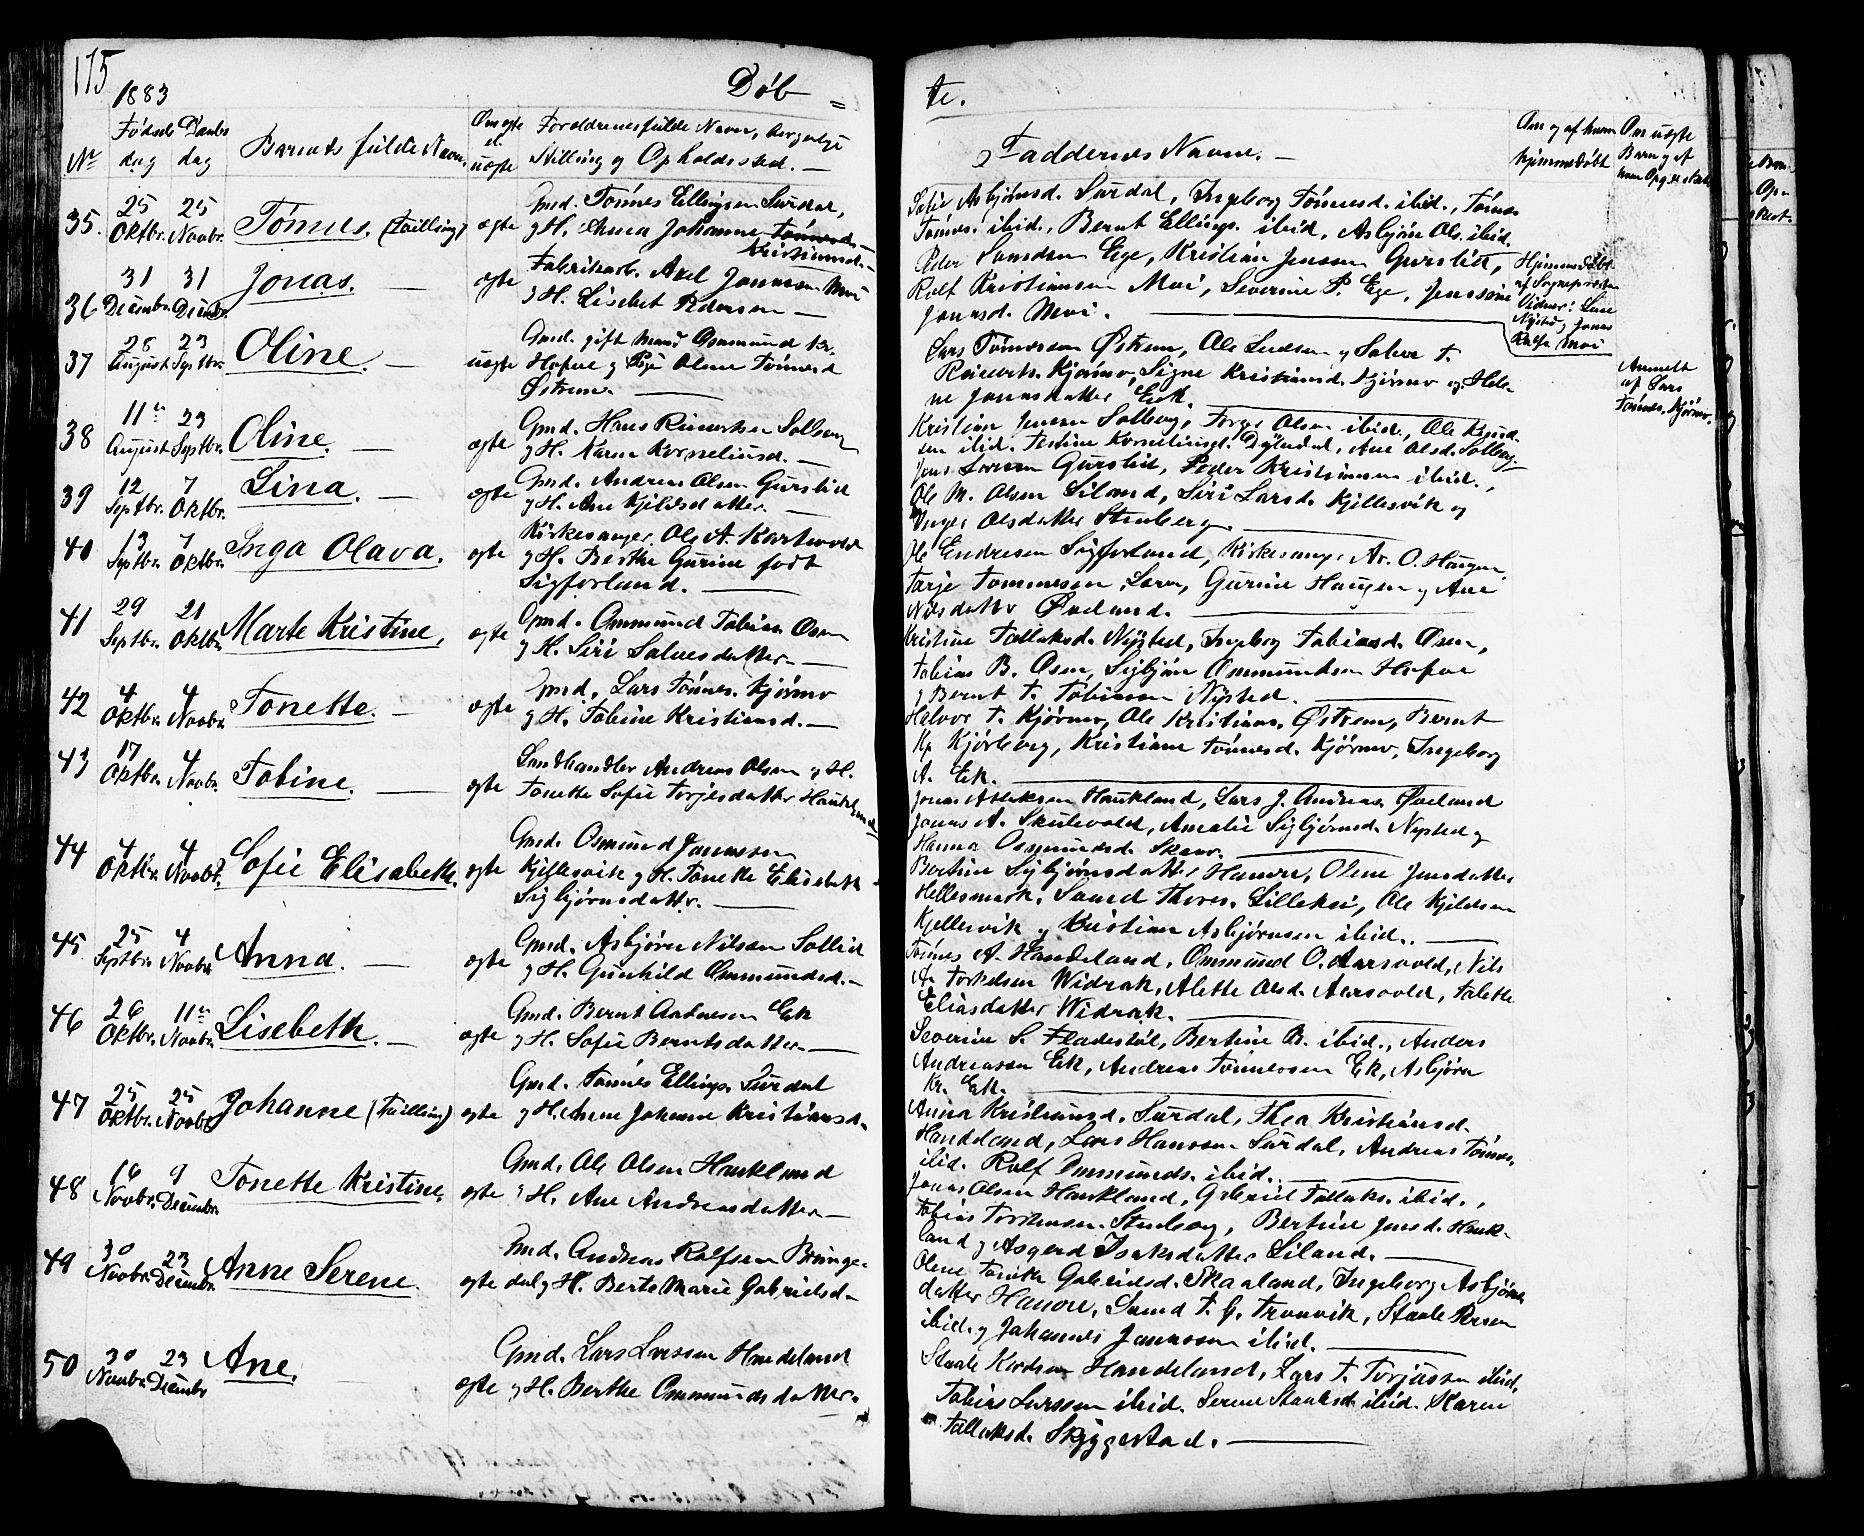 115
1883
Døb=
te.
Nr
Fødsels dag
Daabs dag
Barnets fulde Navn.
Om egte el. uegte
Forældrenes fulde Navn, borgerlige
Stilling og Opholdssted. —
Faddernes Navne. —
Om og af hvem hjemmedøbt
Om uegte Barn og af hvem Opg. er skeet
35. 25 Oktbr. 25 Novbr. Tønnes. (Tvilling) egte
Gmd. Tønnes Ellingsen Surdal,
og H. Anna Johanne Tønnesd. —
Kristiansd. —
Sofie Asbjørnsd. Surdal, Ingeborg Tønnesd. ibid., Tønnes
Tønnes. ibid., Bernt Ellings. ibid., Asbjørn Ols. ibid.
36 31 Decembr. 31 Decembr. Jonas. — egte
Fabrikarb. Axel Jonassen Moi
og H. Lisebet Pedersen —
Peder Samsden Ege, Kristian Jenssen Gurslid,
Rolf Kristiansen Moi, Severine P. Ege, Jenssine
Jonasd. Moi. —
Hjemmedøbt
af Sognepresten
Vidner: Lise
Nysted og Jonas
Rolfs. Moi
37 28 August 23 Septbr. Oline. — uegte
Gmd. gift Mand Ommund Kr.
Hofve og Pige Olene Tønnesd
Østrem. —
Lars Tønnessen Østrem, Ole Ludsen og Salve T.
Reinerts. Kjørmo, Signe Kristiansd. Kjørmo og Hele
ne Jonasdatter Eik. —
Anmeldt
af Lars
Tønnes. Kjørmo.
38 11te August 23 Septbr. Oline. — egte
Gmd. Hans Reinertsen Solberg
og H. Karen Korneliusd. —
Kristian Jensen Solberg, Torger Olsen ibid., Ole Knud
sen ibid. Testine Korneliusd. Dydland, Ane Olsd. Solberg.
39 12 Septbr. 7 Oktbr. Lina. — egte
Gmd. Andreas Olsen Gurslid
og H. Ane Kjeldsdatter. —
Jens Sørensen Gurslid, Peder Kristiansen ibid.,
Ole M. Olsen Liland, Siri Larsd. Kjellesvik og
Inger Olsdatter Stenberg. —
40 13 Septbr. 7 Oktbr. Inga Olava. egte
Kirkesanger Ole A. Kartevold
og H. Berthe Gurine født
Sigforland. —
Ole Endresen Sigforland, Kirkesanger Ar. O. Haugen,
Tarje Tommesen Lervi, Gurine Haugen og Ane
Nilsdatter Øveland. —
41 29 Septbr. 21 Oktbr. Marte Kristine, egte
Gmd. Ommund Tobias. Osen
og H. Siri Salvesdatter. —
Kristine Tollaksd. Nysted, Ingeborg Tobiasd. Osen,
Tobias B. Osen, Sigbjørn Ommundsen Hofve
og Bernt T. Tobiassen Nysted. —
42 4 Oktbr. 4 Novbr. Tonette. — egte
Gmd. Lars Tønnes. Kjørmo
og H. Tobine Kristiansd. —
Halvor T. Kjørmo, Ole Kristians. Østrem, Bernt
Kr. Kjørberg, Kristiane Tønnesd. Kjørmo, Ingeborg
A. Eik. —
43 17 Oktbr. 4 Novbr. Tobine. — egte
Landhandler Andreas Olsen og H.
Tonette Sofie Torjesdatter Haukland
Jonas Aslaksen Haukland, Lars J. Andreas. Øveland
Jonas A. Skulevold, Amalie Sigbjørnsd. Nysted og
Hanna Osmundsd. —
44 4 Oktbr. 4 Novbr. Sofie Elisabeth. egte
Gmd. Osmund Jonassen
Kjellesvik og H. Tonette Elisabeth
Sigbjørnsdattr. —
Bertine Sigbjørnsdatter Hamre, Olene Jensdatter
Hellesmark, Svend Thores. Lilleksi, Ole Kjeldsen
Kjellesvik og Kristian Asbjørnsen ibid. —
45 25 Septbr. 4 Novbr. Anna. — egte
Gmd. Asbjørn Nilsen Sollid
og H. Gunhild Ommundsd. —
Tønnes A. Handeland, Ommund O. Aarsvold, Nils
A. Torkelsen Widrak, Alette Olsd. Aarsvold, Talette
Eliasdatter Widrak. —
46 26 Oktbr. 11te Novbr. Lisebeth. — egte
Gmd. Bernt Andresen Eik
og H. Sofie Berntsdatter —
Severine S. Fladestøl, Bertine B. ibid., Anders
Andreassen Eik, Andreas Tønnessen Eik, Asbjørn
Kr. Eik. —
47 25 Oktbr. 25 Novbr. Johanne (Tvilling) egte
Gmd. Tønnes Ellings. Surdal
og H. Anne Johanne Kristiansd.
Anna Kristiansd. Surdal, Thea Kristiansd.
Handeland, Lars Hanssen Surdal, Andreas Tønnes.
ibid. Rolf Ommunds. ibid. —
48 16 Novbr. 9 Decembr. Tonette Kristine. egte
Gmd. Ole Olsen Haukland
og H. Ane Andreasdatter —
Jonas Olsen Haukland, Gabriel Tollaks. ibid.,
Tobias Torstensen Stenberg, Bertine Jensd. Hauk-
land og Asgerd Isaksdatter Liland. —
49 30 Novbr. 23 Decembr. Anne Serene. egte
Gmd. Andreas Rolfsen Bringe-
dal og H. Berte Marie Gabrielsd.
Olene Tonette Gabrielsd. Skaaland, Ingeborg Asbjørns
datter Hamre, Svend T. G. Tronvik, Staale Persen
ibid. og Johannes Jonassen ibid. —
50 30 Novbr. 23 Decembr. Ane. egte
Gmd. Lars Larssen Handeland
og H. Berthe Ommundsdatter.
Staale Knudsen Handeland, Lars T. Torjussen ibid,
Tobias Larssen ibid. Serene Staalesd. ibid. Karen
Tollaksd. Skjeggestad. —